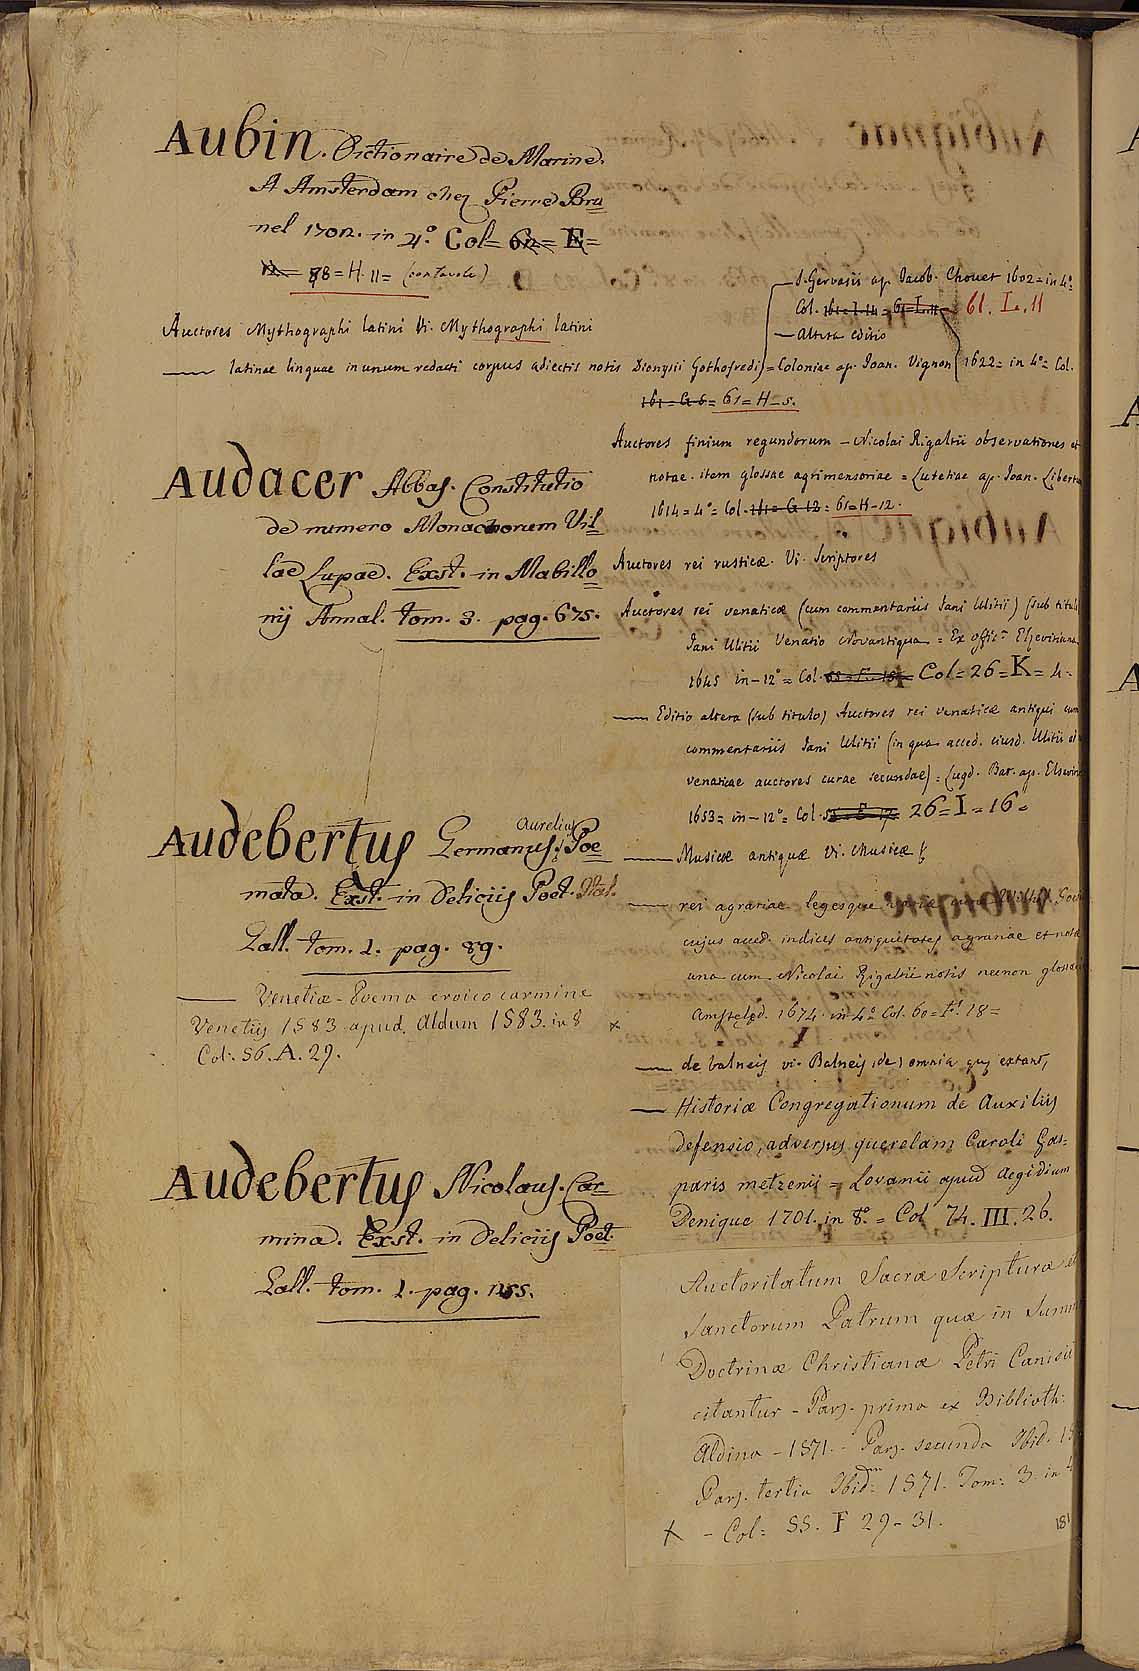 Aubin. Dictionaire de Marine.
A Amsterdam chez Pierre Bru
nel 1702. in 4.º Col = 62 = E =
12 = 88 = H. 11 = (con tavole)
Auctores Mythographi latini Vi. Mythographi latini
— latinae linguae in unum redacti corpus adiectis notis Dionysii Gothofredi
— S. Gervasii ap. Jacob. Chouet 1602 = in 4º
Col. 161 = I. 14 = 61 = I. 11 = 61. I. 11
— Altera editio
= Coloniae ap. Joan. Vignon 1622 = in 4º = Col.
161 = G 6 = 61 = H - 5.
Audacer Abbas. Constitutio
de numero Monachorum Vil
lae Lupae. Exst. in Mabillo
nij Annal. tom. 3. pag. 675.
Audebertus Germanus Aurelius Poe
mata. Exst. in Deliciis Poet. Ital.
Gall. tom. 1. pag. 89.
— Venetiae - Poema eroico carmine
Venetiis 1583 apud Aldum 1583. in 8
Col. 56. A. 29.
Audebertus Nicolaus. Car
mina. Exst. in Deliciis Poet.
Gall. tom. 1. pag. 155.
Auctores finium regundorum — Nicolai Rigaltii observationes et
notae. item glossae agrimensoriae = Lutetiae ap. Joan. Libert
1614 = 4º = Col. 161 = G 12 = 61 = H - 12.
Auctores rei rusticae. Vi. Scriptores
Auctores rei venaticae (cum commentariis Jani Ulitii) (sub titul
Jani Ulitii Venatio Novantiqua = Ex offic. Elzeviriana
1645 in - 12º = Col. Col = 26 = K = 4 =
— Editio altera (sub titulo) Auctores rei venaticae antiqui cum
commentariis Jani Ulitii (in qua acced. eiusd. Ulitii ad
venaticae auctores curae secundae) = Lugd. Bat. ap. Elsevir
1653 = in - 12º = Col. 26 = I = 16 =
— Musicae antiquae Vi. Musicae
— rei agrariae legesque variae cura Wilhel. Goe
cujus acced. indices antiquitates agrariae et notae
una cum Nicolai Rigaltii notis necnon glossar
Amsteled. 1674. in 4º Col. 60 = F. 18 =
x — de balneis vi. Balneis (de) omnia quae extant,
— Historiae Congregationum de Auxiliis
defensio, adversus querelam Caroli Gas=
paris metzenii = Lovanii apud Aegidium
Denique 1701. in 8º. = Col 74. III. 26.
Auctoritatum Sacrae Scripturae et
Sanctorum Patrum quae in Summ
Doctrinae Christianae Petri Canisii
citantur - Pars. prima ex Biblioth:
Aldina - 1571. - Pars. secunda Ibid. 15
Pars. tertia Ibidm 1571. Tom: 3. in 4
x - Col: 55. F 29 - 31.